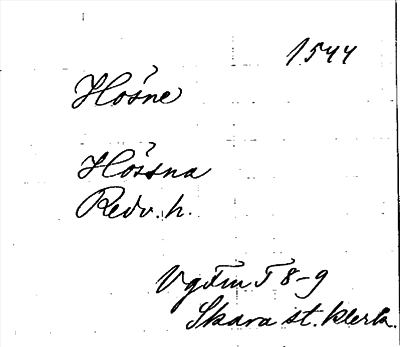 1544
Hósne
Hóssna
Redv. h.
VgFmT 8-9
Skara st. klerk.